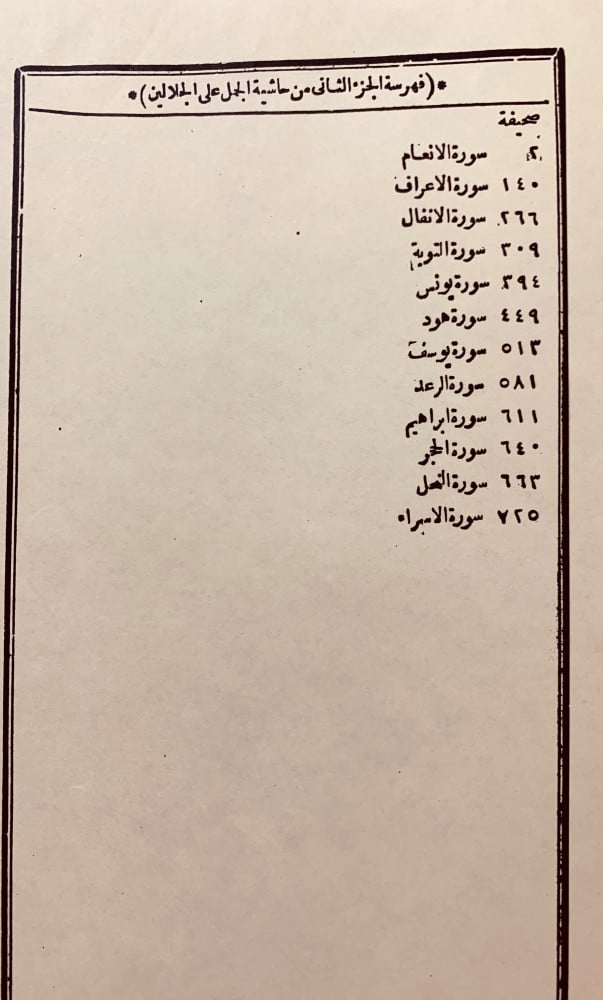 *(فهرسة الجزء الثانى من حاشية الجمل على الجلالين)*
صحيفة
٢ سورة الانعام
١٤٠ سورة الاعراف
٢٦٦ سورة الانفال
٣٠٩ سورة التوبة
٣٩٤ سورة يونس
٤٤٩ سورة هود
٥١٣ سورة يوسف
٥٨١ سورة الرعد
٦١١ سورة ابراهيم
٦٤٠ سورة الحجر
٦٦٣ سورة النحل
٧٢٥ سورة الاسراء